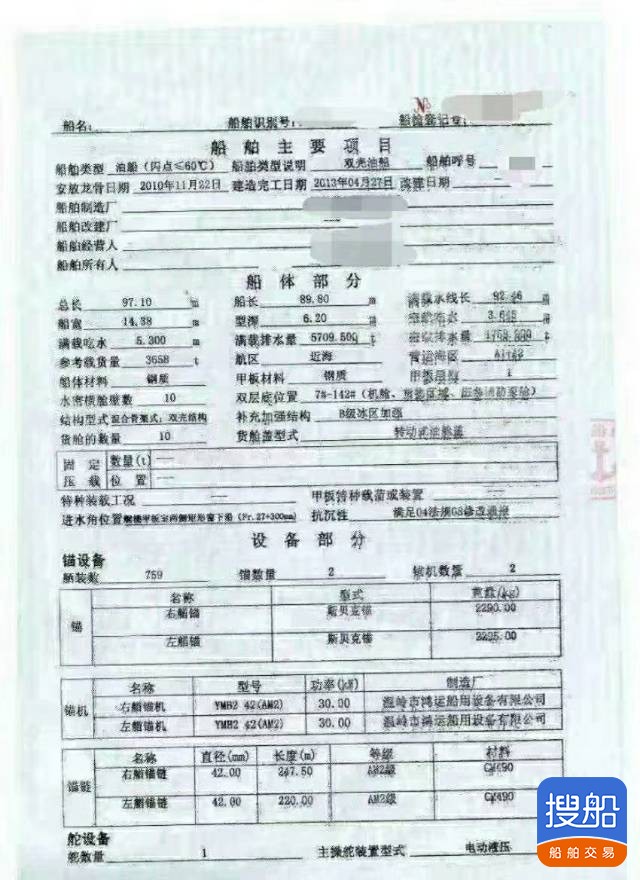 №
船名: 船舶识别号: 船检登记号:
船舶主要项目
船舶类型 油船(闪点≤60℃) 船舶类型说明 双壳油船 船舶呼号
安放龙骨日期 2010年11月22日 建造完工日期 2013年04月27日 改建日期
船舶制造厂
船舶改建厂
船舶经营人
船舶所有人
船体部分
总长 97.10 m 船长 89.80 m 满载水线长 m
船宽 14.38 m 型深 6.20 m 空载吃水 m
满载吃水 5.300 m 满载排水量 5709.500 t 空载排水量 t
参考载货量 3658 t 航区 近海 营运海区
船体材料 钢质 甲板材料 钢质 甲板层数 1
水密横舱壁数 10 双层底位置 78-142#
结构型式 混合骨架式;双壳结构 补充加强结构 B级冰区加强
货舱的数量 10 货舱盖型式 转动式油舱盖
固定压载 数量(t) —
位置 —
特种装载工况 — 甲板特种载荷或装置 —
进水角位置 (Fr.27+300mm) 抗沉性 满足04法规08修改通报
设备部分
锚设备
舾装数 759 锚数量 2 锚机数量 2
锚 名称 型式 质量(kg)
右艏锚 斯贝克锚 2290.00
左艏锚 斯贝克锚
锚机 名称 型号 功率(kW) 制造厂
右艏锚机 YMB2 42(AM2) 30.00 温岭市鸿运船用设备有限公司
左艏锚机 YMB2 42(AM2) 30.00 温岭市鸿运船用设备有限公司
锚链 名称 直径(mm) 长度(m) 等级 材料
右艏锚链 42.00 247.50 AM2级 CM490
左艏锚链 42.00 220.00 AM2级 CM490
舵设备
舵数量 1 主操舵装置型式 电动液压
搜船
船舶交易